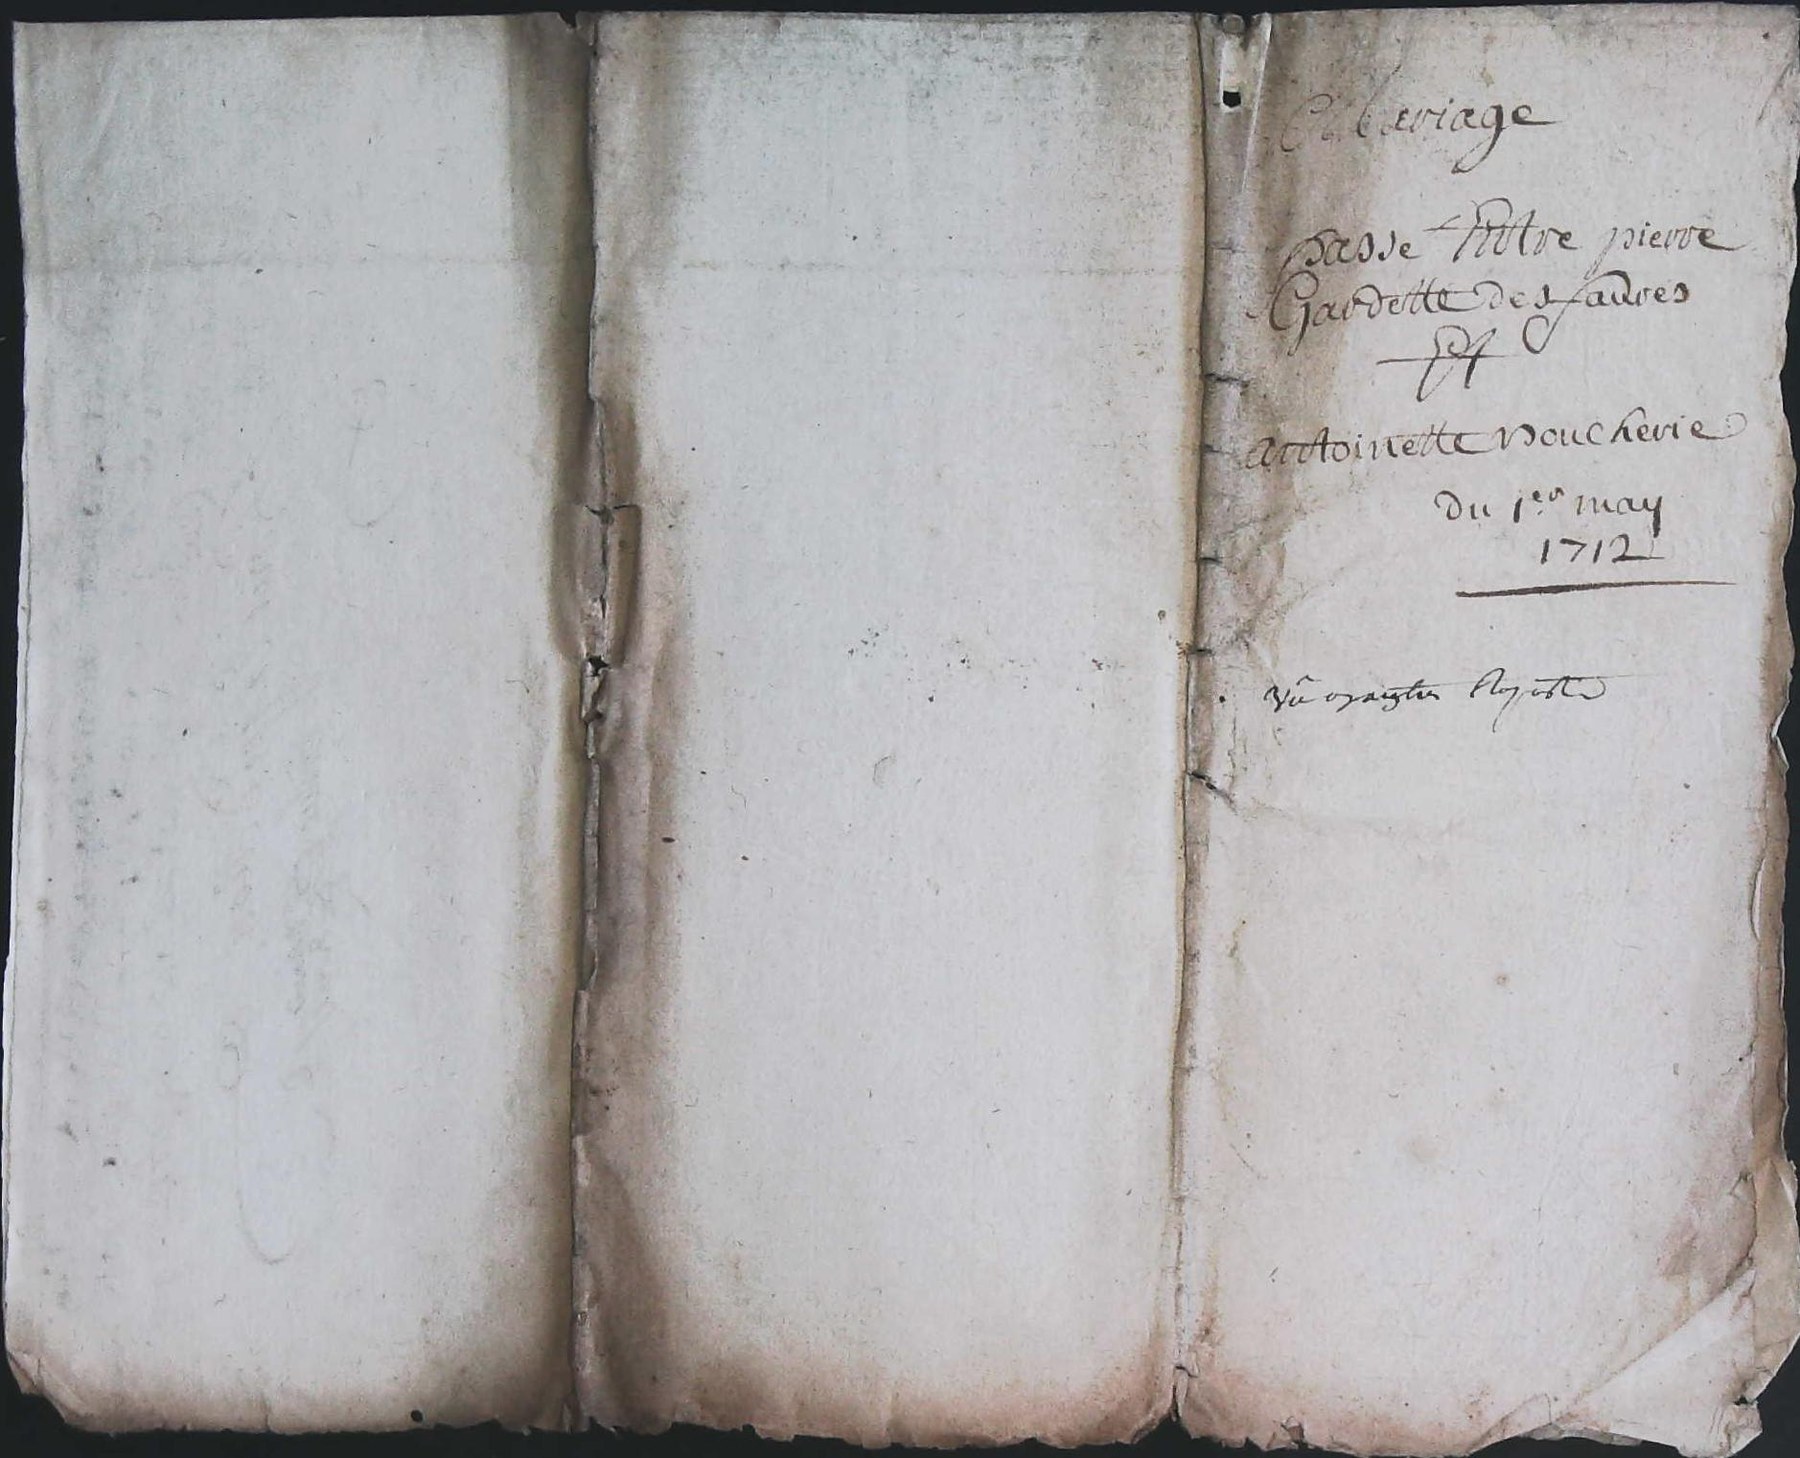 Mariage
Passé Entre pierre
Gardette des faures
Et
antoinette Boucherie
du 1er may
1712
Vû